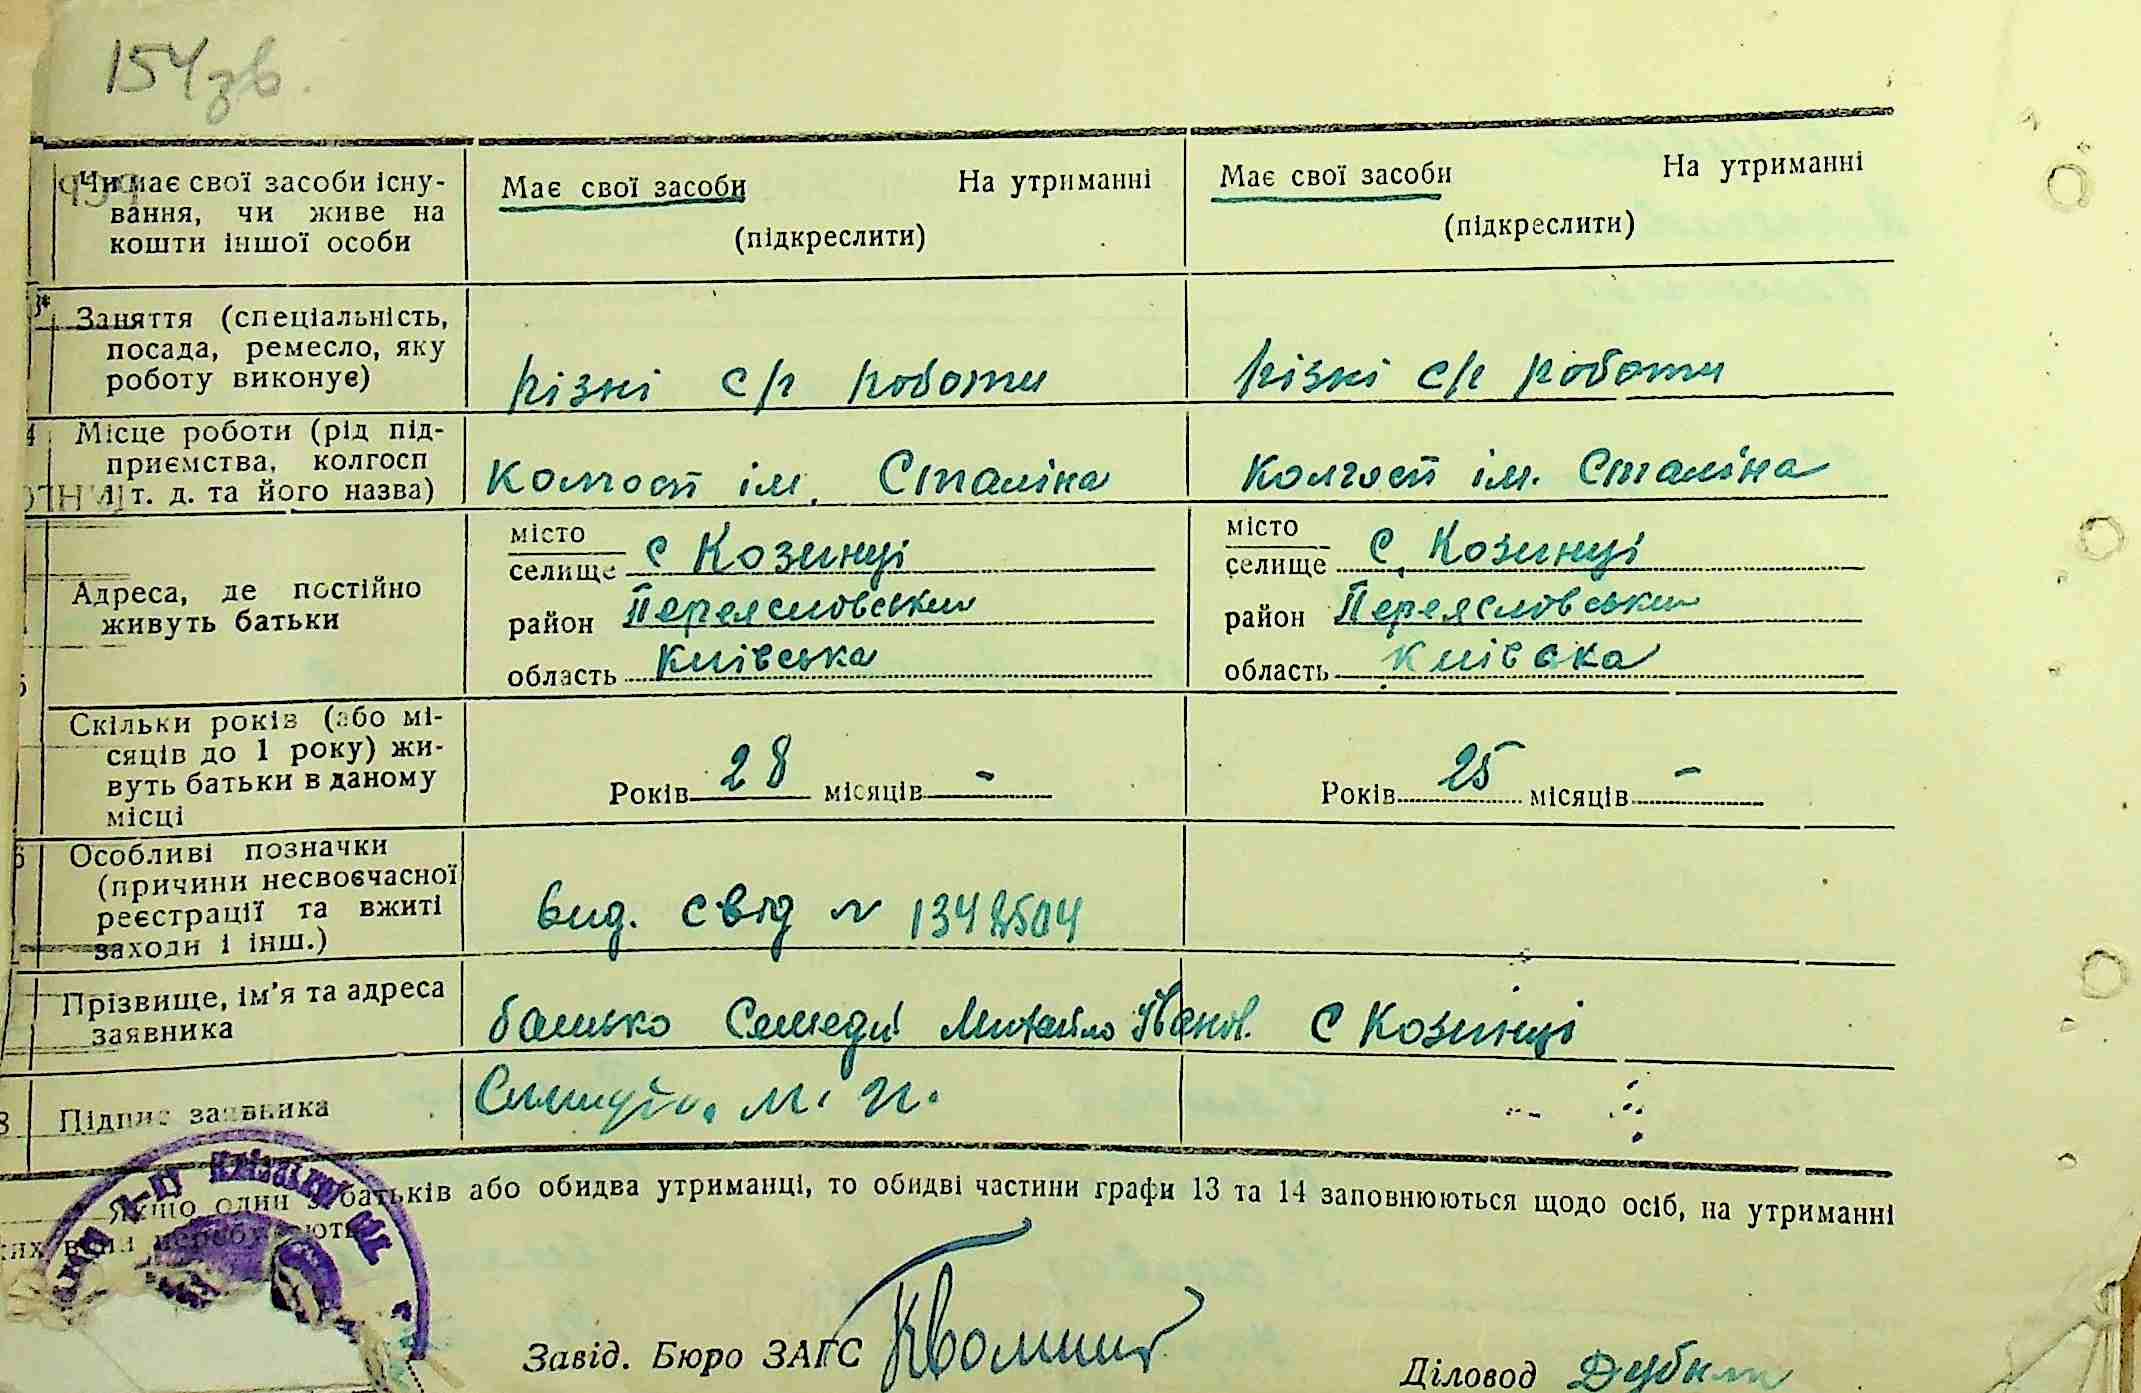 154зв.
Чи має свої засоби існу-
вання, чи живе на
кошти іншої особи
Має свої засоби На утриманні
(підкреслити)
Має свої засоби На утриманні
(підкреслити)
Заняття (спеціальність,
посада, ремесло, яку
роботу виконує)
різні с/г роботи
різні с/г роботи
Місце роботи (рід під-
приємства, колгосп
і т. д. та його назва)
Колгосп ім. Сталіна
Колгосп ім. Сталіна
Адреса, де постійно
живуть батьки
місто
селище с Козинці
район Переясловський
область Київська
місто
селище с. Козинці
район Переясловський
область Київська
Скільки років (або мі-
сяців до 1 року) жи-
вуть батьки в даному
місці
Років 28 місяців -
Років 25 місяців -
Особливі позначки
(причини несвоєчасної
реєстрації та вжиті
заходи і інш.)
вид. свід № 1342504
Прізвище, ім'я та адреса
заявника
батько Михайло Іванов. с Козинці
8 Підпис заявника
М. І.
Якщо один з батьків або обидва утриманці, то обидві частини графи 13 та 14 заповнюються щодо осіб, на утриманні
яких вони перебувають
Завід. Бюро ЗАГС
Діловод